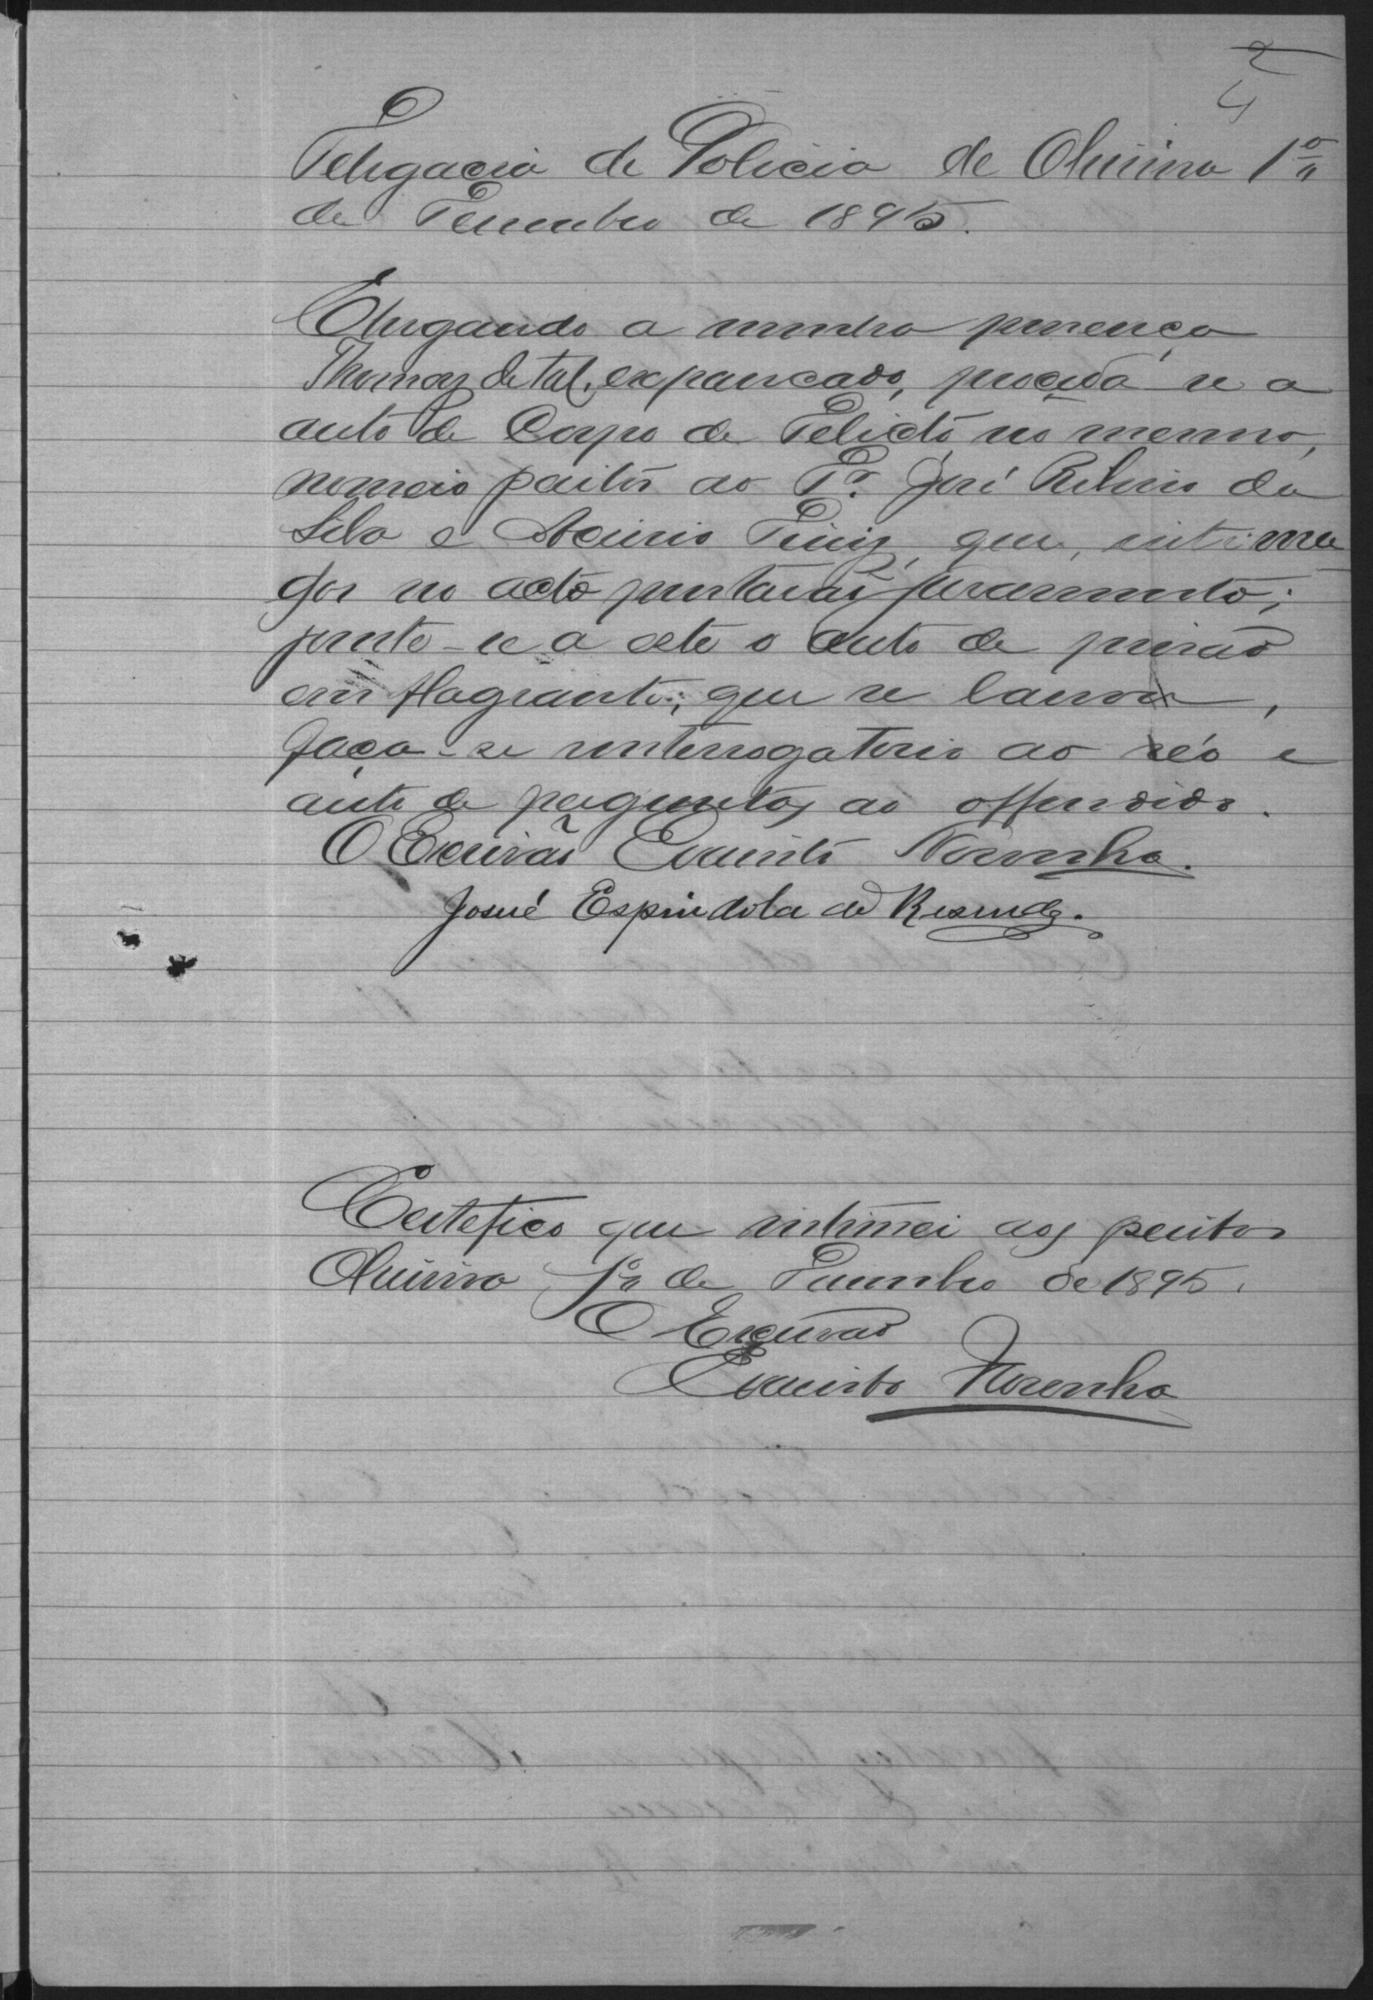 2
4
Delegacia de Policia de Oliveira 1º
de Dezembro de 1895.
Chegando a minha presença
Thomaz de tal, expancado, proceda-se a
auto de Corpo de Delicto no mesmo,
nomeio peritos ao Dr. José Ribeiro da
Silva e Diniz, que, intima
dos no acto prestarão juramento;
junte-se a este o auto de prisão
em flagrante, que se lavrou,
faça-se interrogatorio ao réo e
auto de perguntas ao offendido.
O Escrivão Evaristo Noronha.
Josué Espindola de Resende.
Certefico que intimei aos peritos
Oliveira 1º de Dezembro de 1895.
O Escrivão
Evaristo Noronha